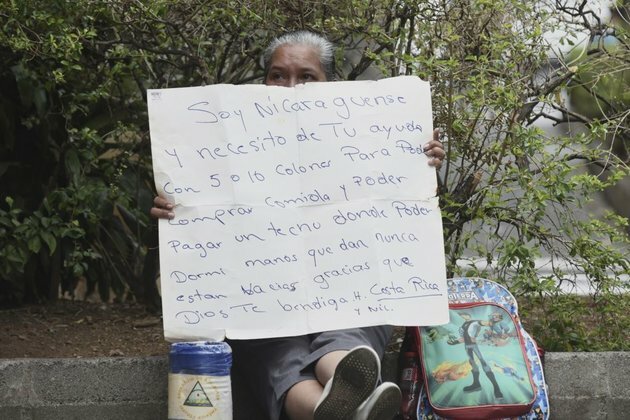 Soy Nicaraguense
y necesito de Tu ayuda
con 5 o 10 colones Para Poder
comprar comiola y poder
Pagar un techo donde Poder
Dormi manos que dan nunca
estan vacias gracias que
Dios Te bendiga H. Costa Rica
y Nic.